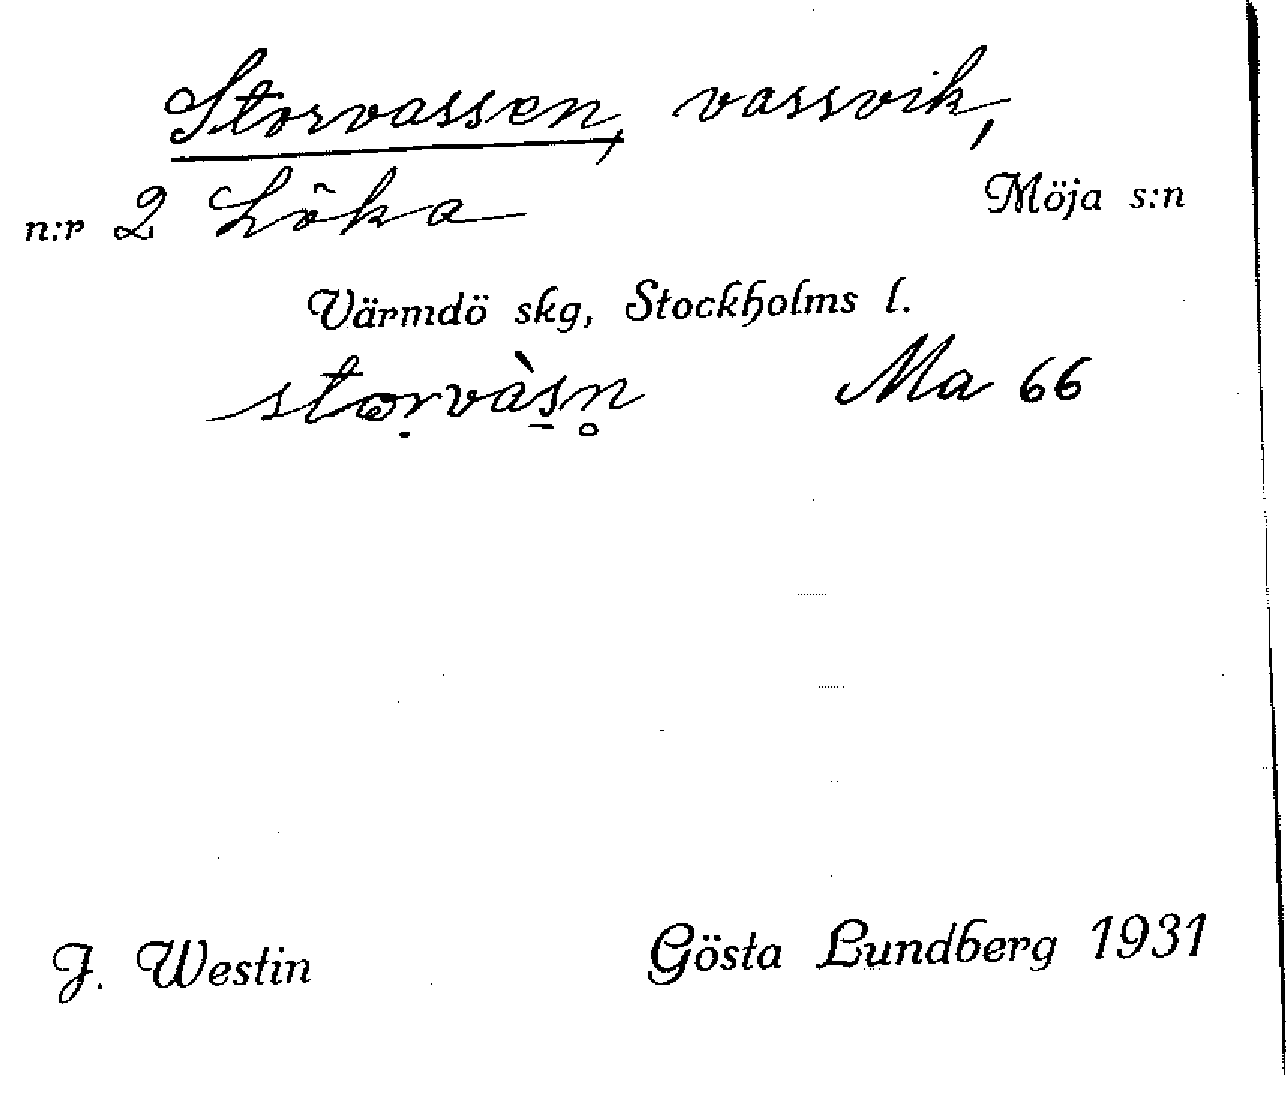 Storvassen, vassvik,
n:r 2 Löka Möja s:n
Värmdö skg, Stockholms l.
storvàs̠n̥ Ma 66
J. Westin Gösta Lundberg 1931